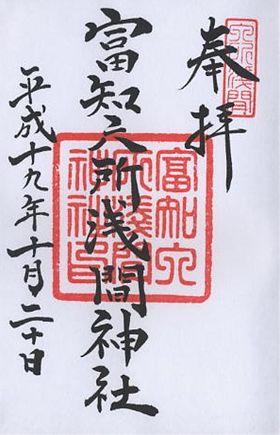 奉拝
六所浅間
富知六所浅間神社
富知六
所浅間
神社印
平成十九年十月二十日